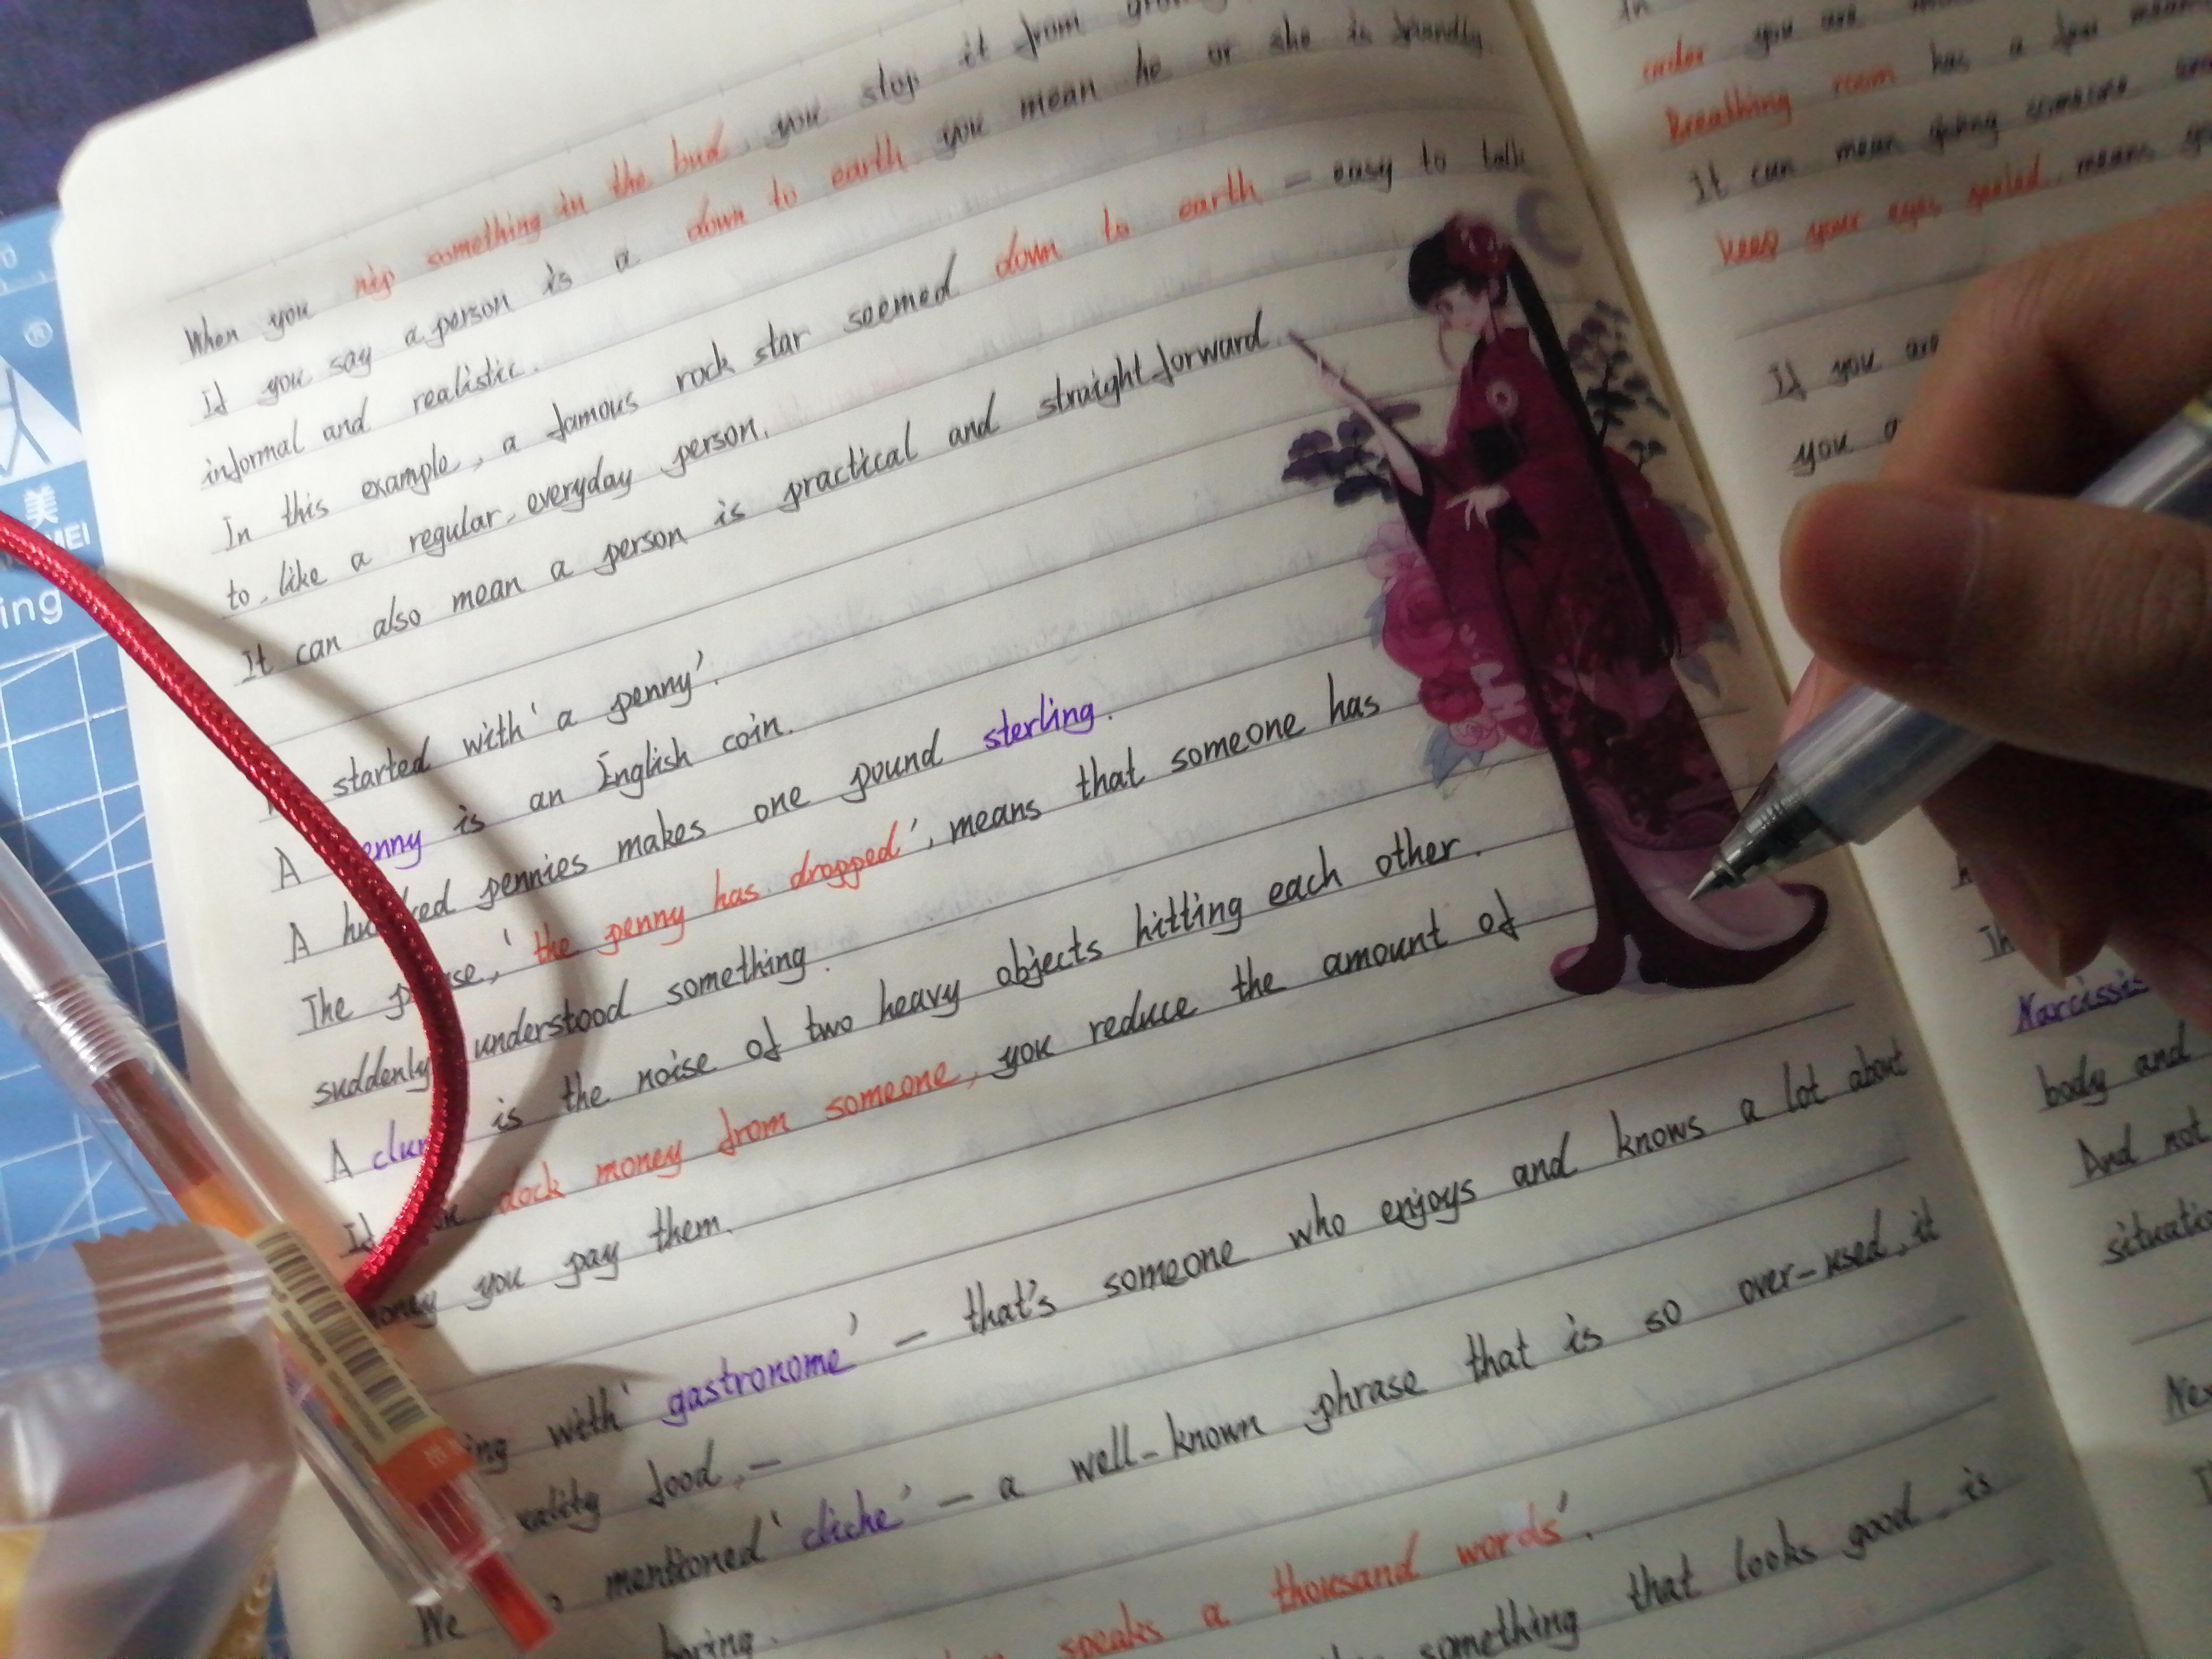 When you nip something in the bud, you stop it from
If you say a person is a down to earth you mean he or she is friendly
informal and realistic.
In this example, a famous rock star seemed down to earth - easy to talk
to, like a regular, everyday person.
It can also mean a person is practical and straightforward.
started with 'a penny'.
A enny is an English coin.
A hu red pennies makes one pound sterling.
The p se, 'the penny has dropped', means that someone has
suddenly understood something.
A clun is the noise of two heavy objects hitting each other.
If dock money from someone, you reduce the amount of
oney you pay them.
ing with 'gastronome' - that's someone who enjoys and knows a lot about
ality food, -
We mentioned 'cliche' - a well-known phrase that is so over-used, it
boring.
speaks a thousand words'.
something that looks good, is
In
order you are
Breathing room has a few
It can mean giving someone
keep your eyes peeled, means
If you are
you
Narcissis
body and
And not
situatio
Nex
美
MEI
ing
®
0